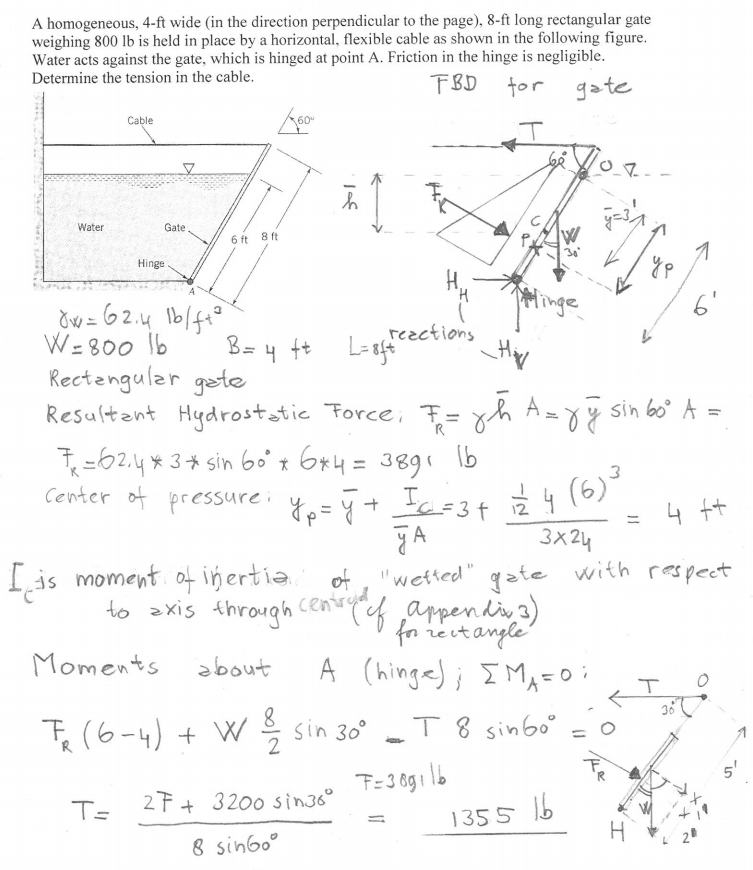 A homogeneous, 4-ft wide (in the direction perpendicular to the page), 8-ft long rectangular gate
weighing 800 lb is held in place by a horizontal, flexible cable as shown in the following figure.
Water acts against the gate, which is hinged at point A. Friction in the hinge is negligible.
Determine the tension in the cable.
FBD for gate
Cable
60°
T
60°
O
h̄
F_R
ȳ=3'
Water
Gate
6 ft
8 ft
C
P
W
30°
y_P
Hinge
A
H_H
Hinge
6'
γw = 62.4 lb/ft³
reactions
H_V
W = 800 lb B = 4 ft L = 8ft
Rectangular gate
Resultant Hydrostatic Force; F_R = γ h̄ A = γ ȳ sin 60° A =
F_R = 62.4 * 3 * sin 60° * 6*4 = 3891 lb
Center of pressure: y_P = ȳ + I_c/(ȳ A) = 3 + (1/12 4 (6)³)/(3×24) = 4 ft
I_c is moment of inertia of "wetted" gate with respect
to axis through centroid (cf appendix 3)
for rectangle
Moments about A (hinge); ΣM_A = 0:
F_R (6-4) + W 8/2 sin 30° - T 8 sin60° = 0
T
O
30°
F_R
5'
F = 3891 lb
T = (2F + 3200 sin30°)/(8 sin60°) = 1355 lb
W
H